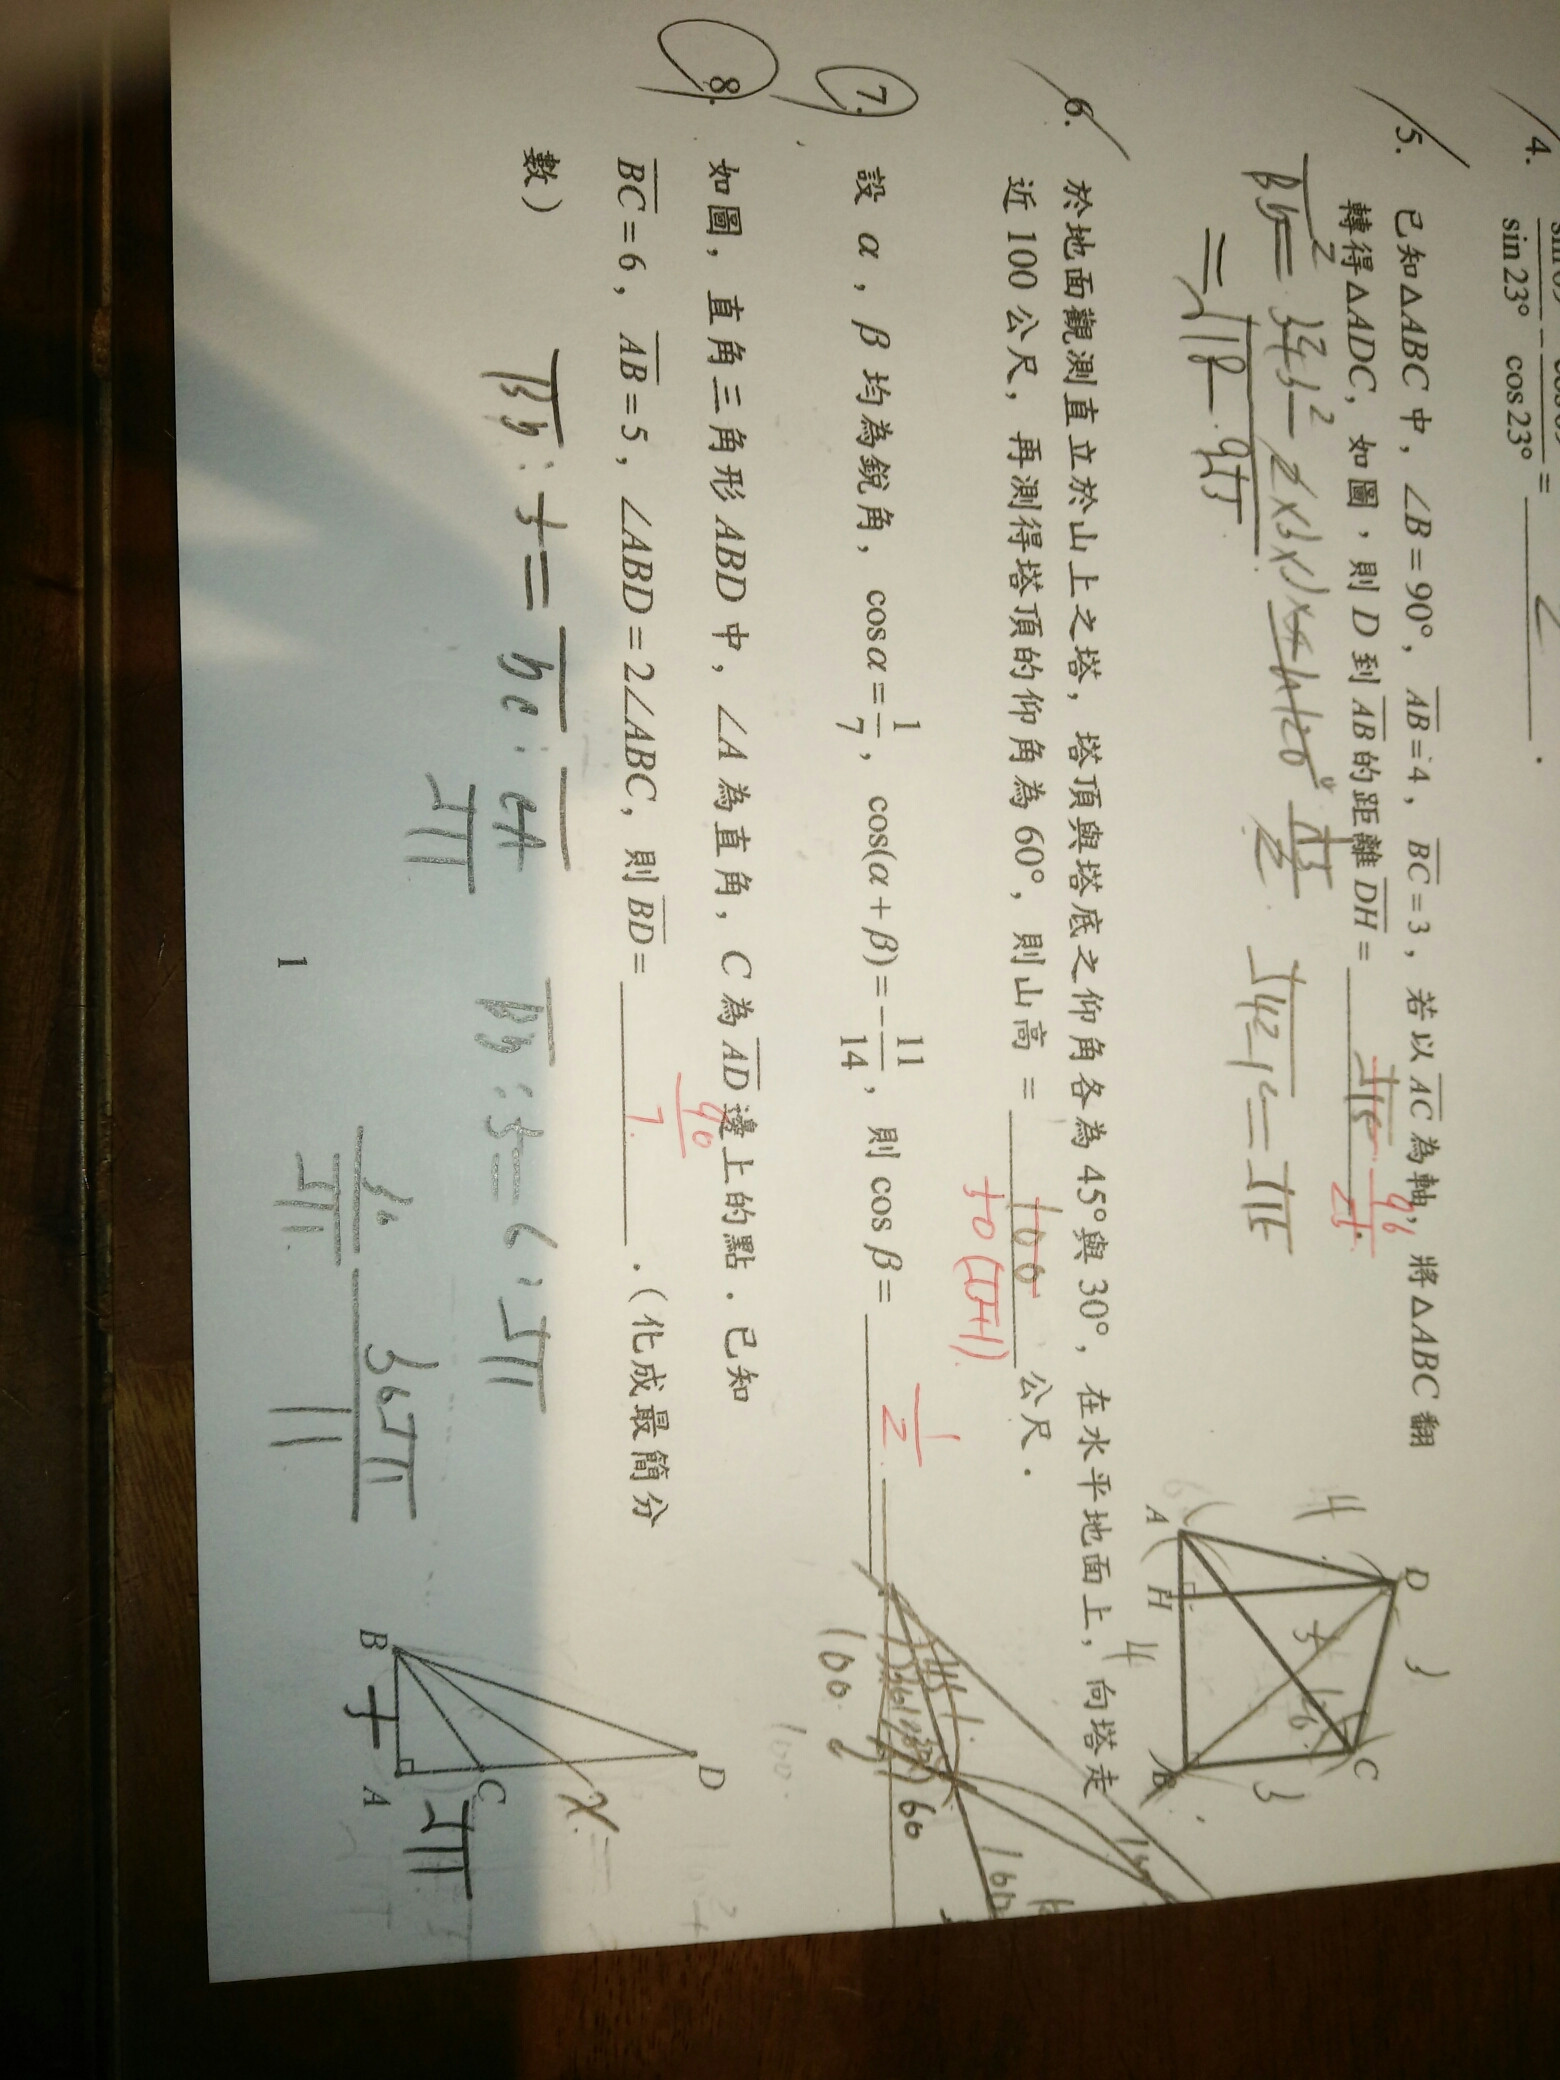 4.
sin 23° cos 23° =
5. 已知△ABC 中，∠B＝90°，AB＝4，BC＝3，若以 AC 為軸，將△ABC 翻
轉得△ADC，如圖，則 D 到 AB 的距離 DH＝
96
25
= √18
√15
A
H
B
C
D
4
3
5
4
3
6. 於地面觀測直立於山上之塔，塔頂與塔底之仰角各為 45°與 30°，在水平地面上，向塔走
近 100 公尺，再測得塔頂的仰角為 60°，則山高 = 100 公尺．
50(√3+1)
7. 設 α，β 均為銳角，cos α = 1/7，cos(α + β) = −11/14，則 cos β = 1/2
60
100
8. 如圖，直角三角形 ABD 中，∠A 為直角，C 為 AD 邊上的點．已知
BC＝6，AB＝5，∠ABD＝2∠ABC，則 BD＝ 90/7 ．（化成最簡分
數）
BD : 5 = DC : CA
√11
BD : 5 = 6 : √11
30/√11
11
B
A
C
D
5
√11
x
1